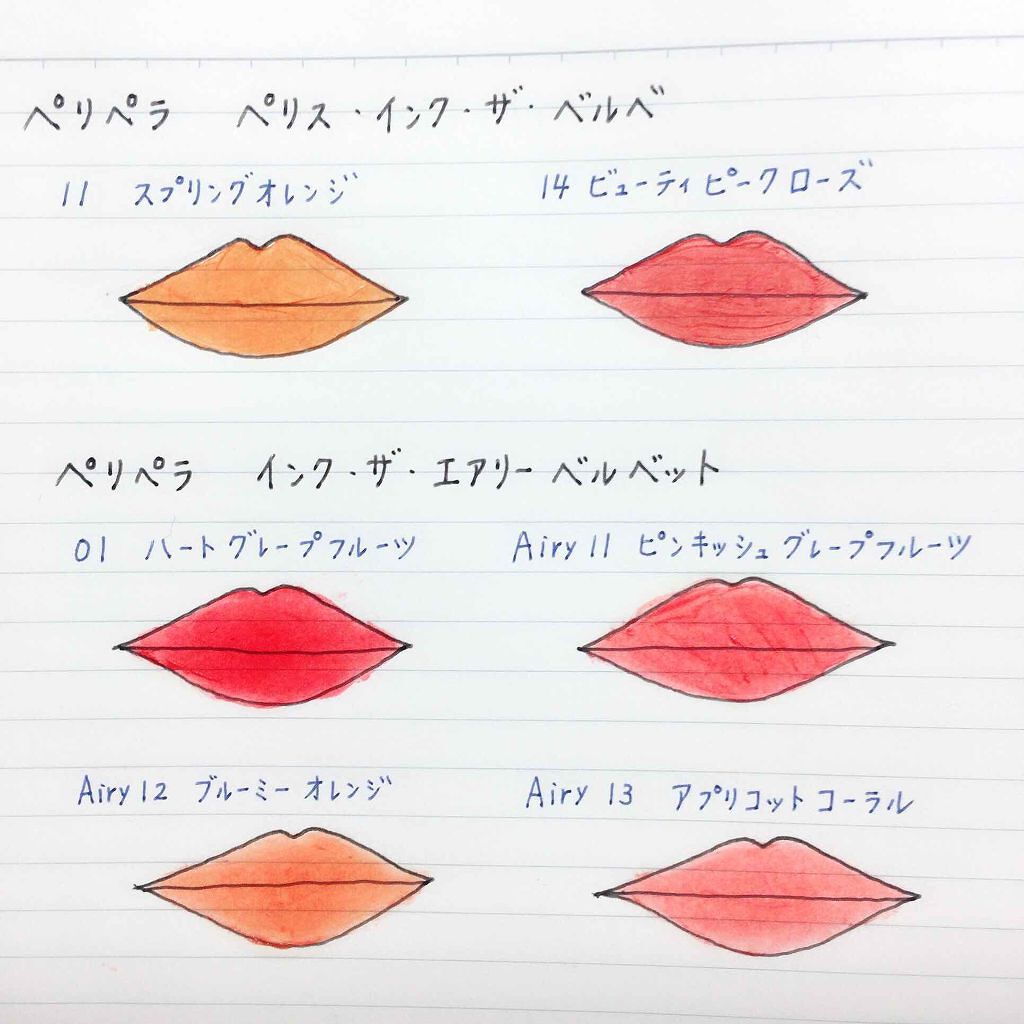 ペリペラ ペリス・インク・ザ・ベルベ
11 スプリングオレンジ
14 ビューティピークローズ
ペリペラ インク・ザ・エアリーベルベット
01 ハートグレープフルーツ
Airy 11 ピンキッシュグレープフルーツ
Airy 12 ブルーミーオレンジ
Airy 13 アプリコットコーラル